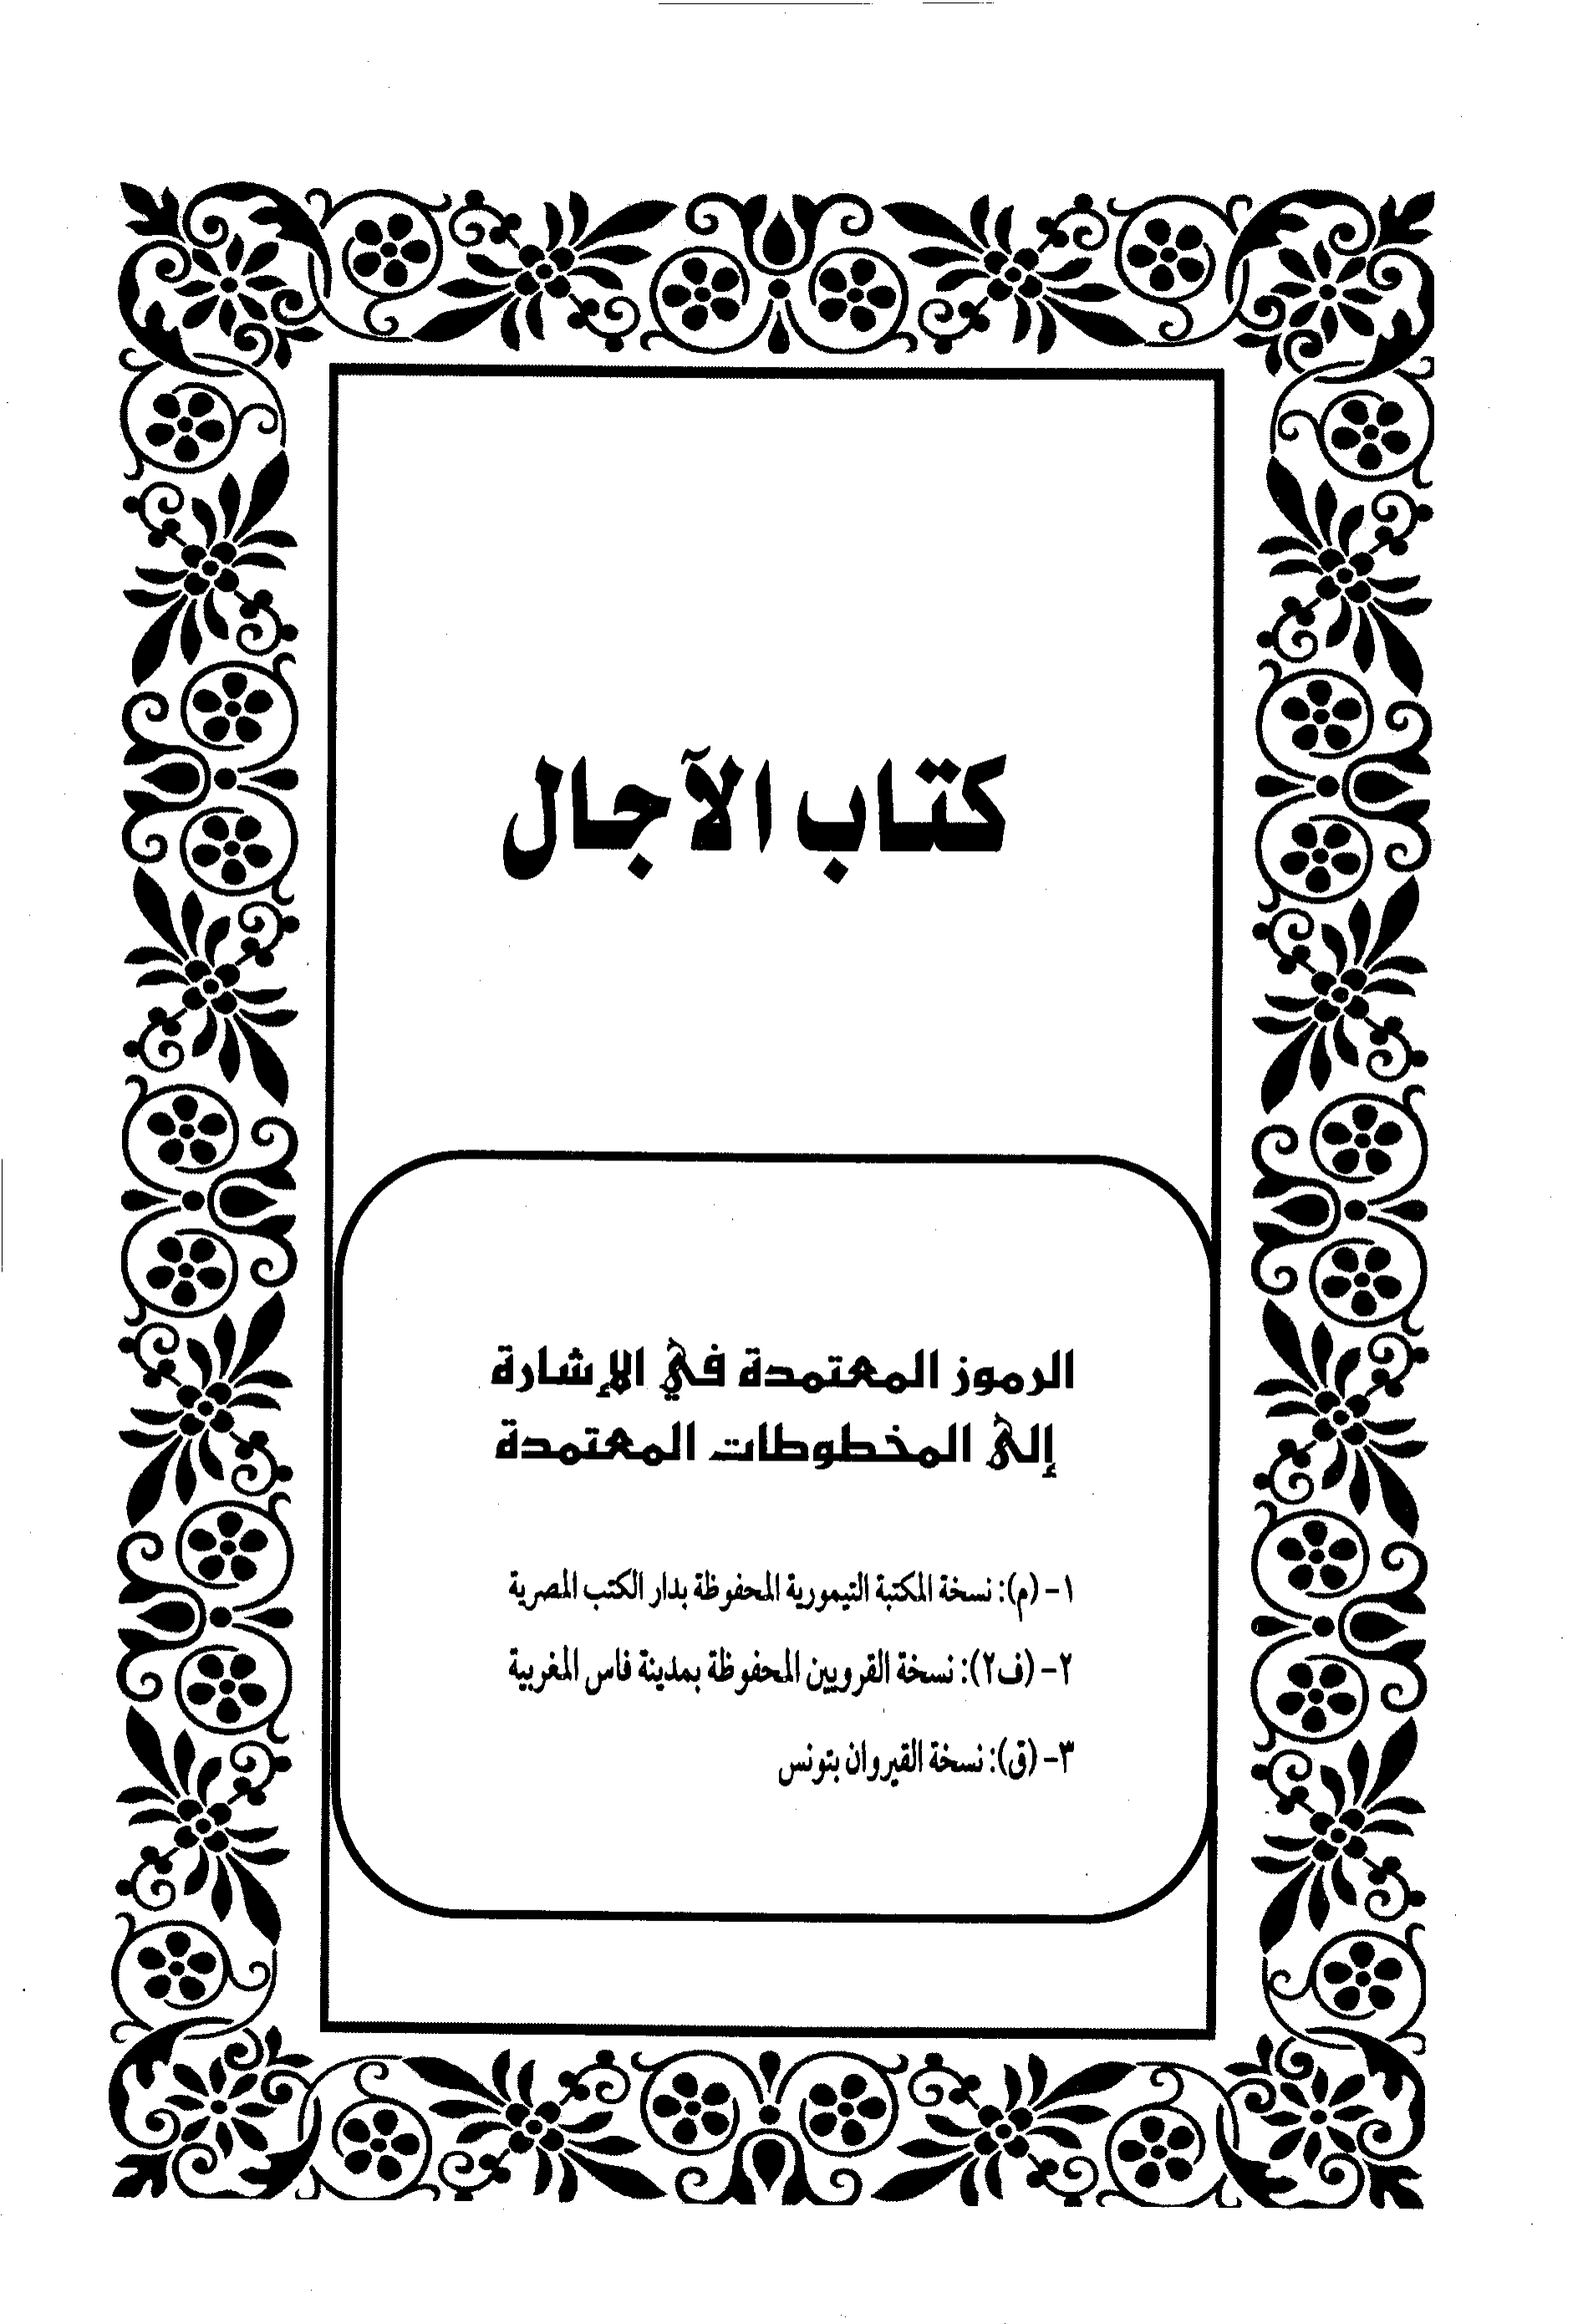 كتاب الآجال
الرموز المعتمدة في الإشارة
إلى المخطوطات المعتمدة
١- (م): نسخة المكتبة التيمورية المحفوظة بدار الكتب المصرية
٢- (ف٢): نسخة القرويين المحفوظة بمدينة فاس المغربية
٣- (ق): نسخة القيروان بتونس